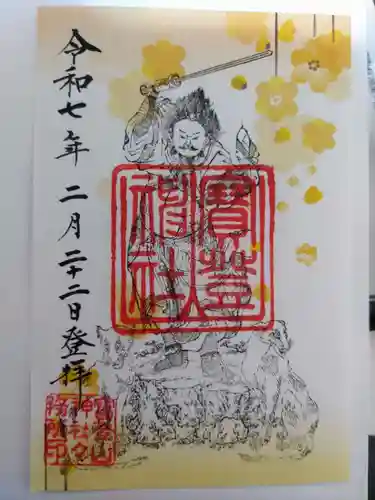 令和七年二月二十二日登拝
寶登山
神社
寶登山
神社社
務所印